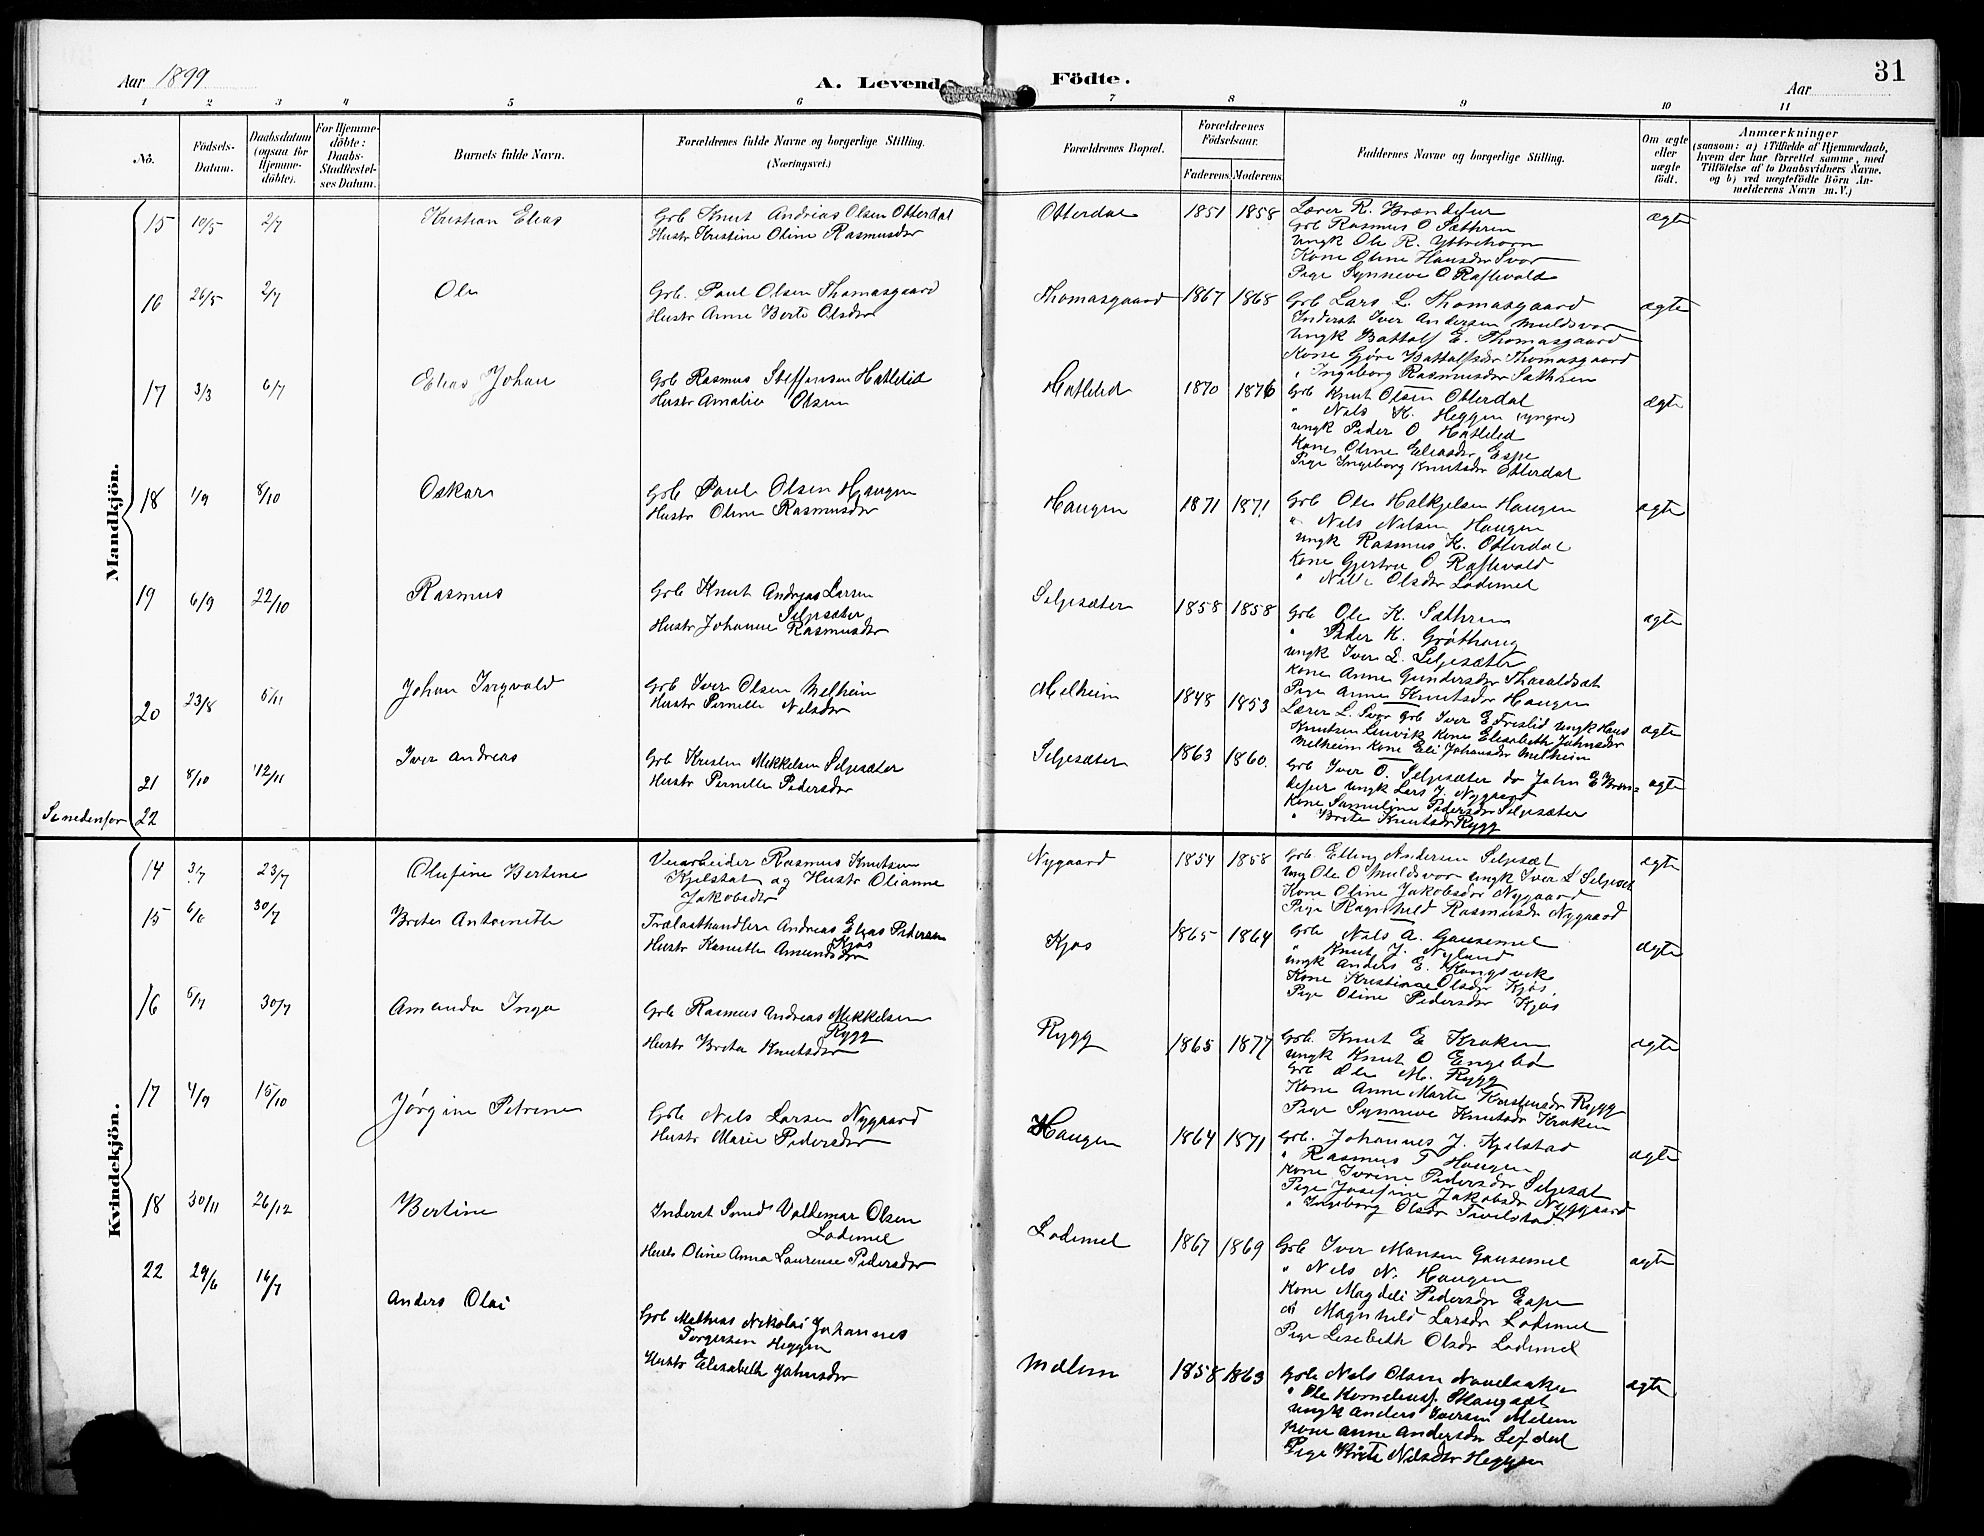 Aar 1899
A. Levende Födte.
31
Aar
1 2 3 4 5 6 7 8 9 10 11
No.
Födsels-Datum.
Daabsdatum (ogsaa for Hjemme-döbte).
For Hjemme-döbte: Daabs-Stadfæstel-ses Datum.
Barnets fulde Navn.
Forældrenes fulde Navne og borgerlige Stilling. (Næringsvei.)
Forældrenes Bopæl.
Forældrenes Födselsaar.
Faderens. Moderens.
Faddernes Navne og borgerlige Stilling.
Om ægte eller uægte födt.
Anmærkninger
(saasom: a) i Tilfælde af Hjemmedaab, hvem der har forrettet samme, med Tilföielse af to Daabsvidners Navne. og b) ved uægtefödte Börn An-melderens Navn m. V.)
Mandkjön.
15 10/5 2/7 Kristian Elias
Grb Knut Andreas Olsen Otterdal
Hustr Kristine Oline Rasmusdr
Otterdal 1851 1858
Lærer R. Brændefur
Grb Rasmus O Sæthren
Ungk Ole R. Yttrehorn
Kone Oline Hansdr Svor
Pige Synneve O Raftevold
ægte
16 26/5 2/7 Ole
Grb. Paul Olsen Thomasgaard
Hustr Anne Berte Olsdr
Thomasgaard 1867 1868
Grb Lars L. Thomasgaard
Inderst Iver Andersen Muldsvor
Ungk Battolf E. Thomasgaard
Kone Gjøre Battolfsdr Thomasgaard
" Ingeborg Rasmusdr Sæthren
ægte
17 3/3 6/7 Elias Johan
Grb Rasmus Steffensen Hatleli
Hustr Amalie Olsen
Hatleled 1870 1876
Grb Knut Olsen Otterdal
" Nils K. Heggen (yngre)
Ungk Peder O Hatleled
Kone Oline Eliasdr Espe
Pige Ingeborg Knutsdr Otterdal
ægte
18 1/9 8/10 Oskar
Grb Paul Olsen Haugen
Hustr Oline Rasmusdr
Haugen 1871 1871
Grb Ole Halkjelsen Haugen
" Nils Nilsen Haugen
Ungk Rasmus K. Otterdal
Kone Gjertru O Raftevold
" Nille Olsdr Lodemel
ægte
19 6/9 22/10 Rasmus
Grb Knut Andreas Larsen
Seljesæter
Hustr Johanne Rasmusdr
Seljesæter 1858 1858
Grb Ole K. Sæthren
" Peder K. Grøthaug
Ungk Iver L. Seljesæter
Kone Anne Gundersdr Tharaldsæt
Pige Anne Knutsdr Haugen
ægte
20 23/8 5/11 Johan Ingvald
Grb Iver Olsen Melheim
Hustr Pernille Nilsdr
Melheim 1848 1853
Lærer L. Svor Grb Iver E Freslid Ungk Hans
Knutsen Lenvik Kone Elisabeth Johnsdr
Melheim Kone Eli Johansdr Melheim
ægte
21 8/10 12/11 Iver Andreas
Grb Kristen Mikkelsen Seljesæter
Hustr Pernille Pedersdr
Seljesæter 1863 1860
Grb Iver O. Seljesæter do John E Bræn-
defur Ungk Lars J. Nygaard
Kone Samuline Pedersdr Seljesæter
" Brite Knutsdr Rygg
ægte
Se nedenfor 22
Kvindekjön.
14 3/7 23/7 Olufine Bertine
Veiarbeider Rasmus Knutsen
Kjelstad og Hustr Olianne
Jakobsdr
Nygaard 1854 1858
Grb. Elling Andersen Seljesæt
Ung Ole O Muldsvor Ungk Iver L Seljesæt
Kone Oline Jakobsdr Nygaard
Pige Ragnhild Rasmusdr Nygaard
ægte
15 6/6 30/7 Brite Antoinette
Trælasthandler Andreas Elias Pedersen
Kjøs
Hustr Kanutte Amundsdr
Kjøs 1865 1864
Grb Nils A. Gausemel
" Knut J. Nyland
Ungk Anders E. Kongsvik
Kone Kristiane Olsdr Kjøs
Pige Oline Pedersdr Kjøs
ægte
16 5/7 30/7 Amanda Inga
Grb Rasmus Andreas Mikkelsen
Rygg
Hustr Brita Knutsdr
Rygg 1865 1877
Grb. Knut E Kroken
Ungk Knut O Engebø
Grb Ole M. Rygg
Kone Anne Marte Kristensdr Rygg
Pige Synneve Knutsdr Kroken
ægte
17 4/9 15/10 Jørgine Petrine
Grb Nils Larsen Nygaard
Hustr Marie Pedersdr
Haugen 1864 1871
Grb. Johannes J. Kjelstad
" Rasmus T Haugen
Kone Ivrine Pedersdr Seljesæt
Pige Josefine Jakobsdr Nygaard
" Ingeborg Olsdr Tveilstad
ægte
18 30/11 26/12 Bertine
Inderst Smed Valdemar Olsen
Lodemel
Hustr Oline Anna Laurense Pedersdr
Lodemel 1867 1869
Grb Iver Mansen Gausemel
" Nils N. Haugen
Kone Magdeli Pedersdr Espe
do Magnhild Larsdr Lodemel
Pige Lisebeth Olsdr Lodemel
ægte
22 29/6 16/7 Anders Olai
Grb Mathias Nikolai Johannes
Torgersen Heggen
Hustr Elisabeth Johnsdr
Mælem 1858 1863
Grb Nils Olsen Navelsaker
" Ole Korneliusf. Haugsæt
Ungk Anders Iversen Melem
Kone Anne Andersdr Lefdal
Pige Brite Nilsdr Heggen
ægte